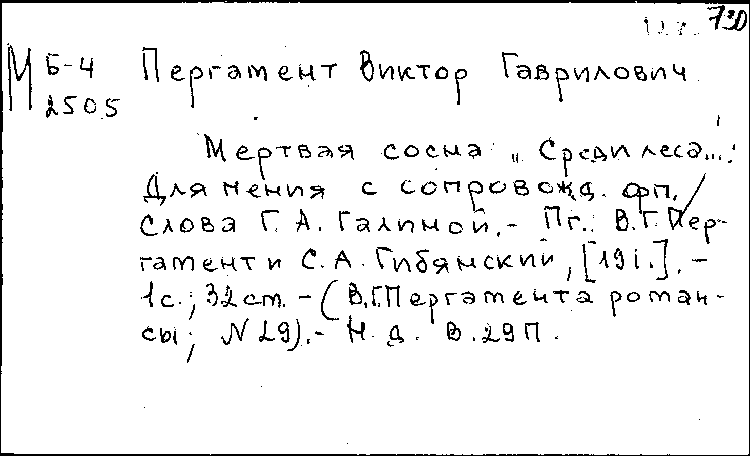 730
М Б-4 Пергамент Виктор Гаврилович
2505
Мертвая сосна „Среди леса..."
Для пения с сопровожд. фп.
Слова Г. А. Галиной.- Пг.: В.Г.Пер-
гамент и С. А. Гибянский, [191.].-
1с.; 32 cm. - (В.Г.Пергамента роман-
сы; N 29).- Н. д. В.29П.